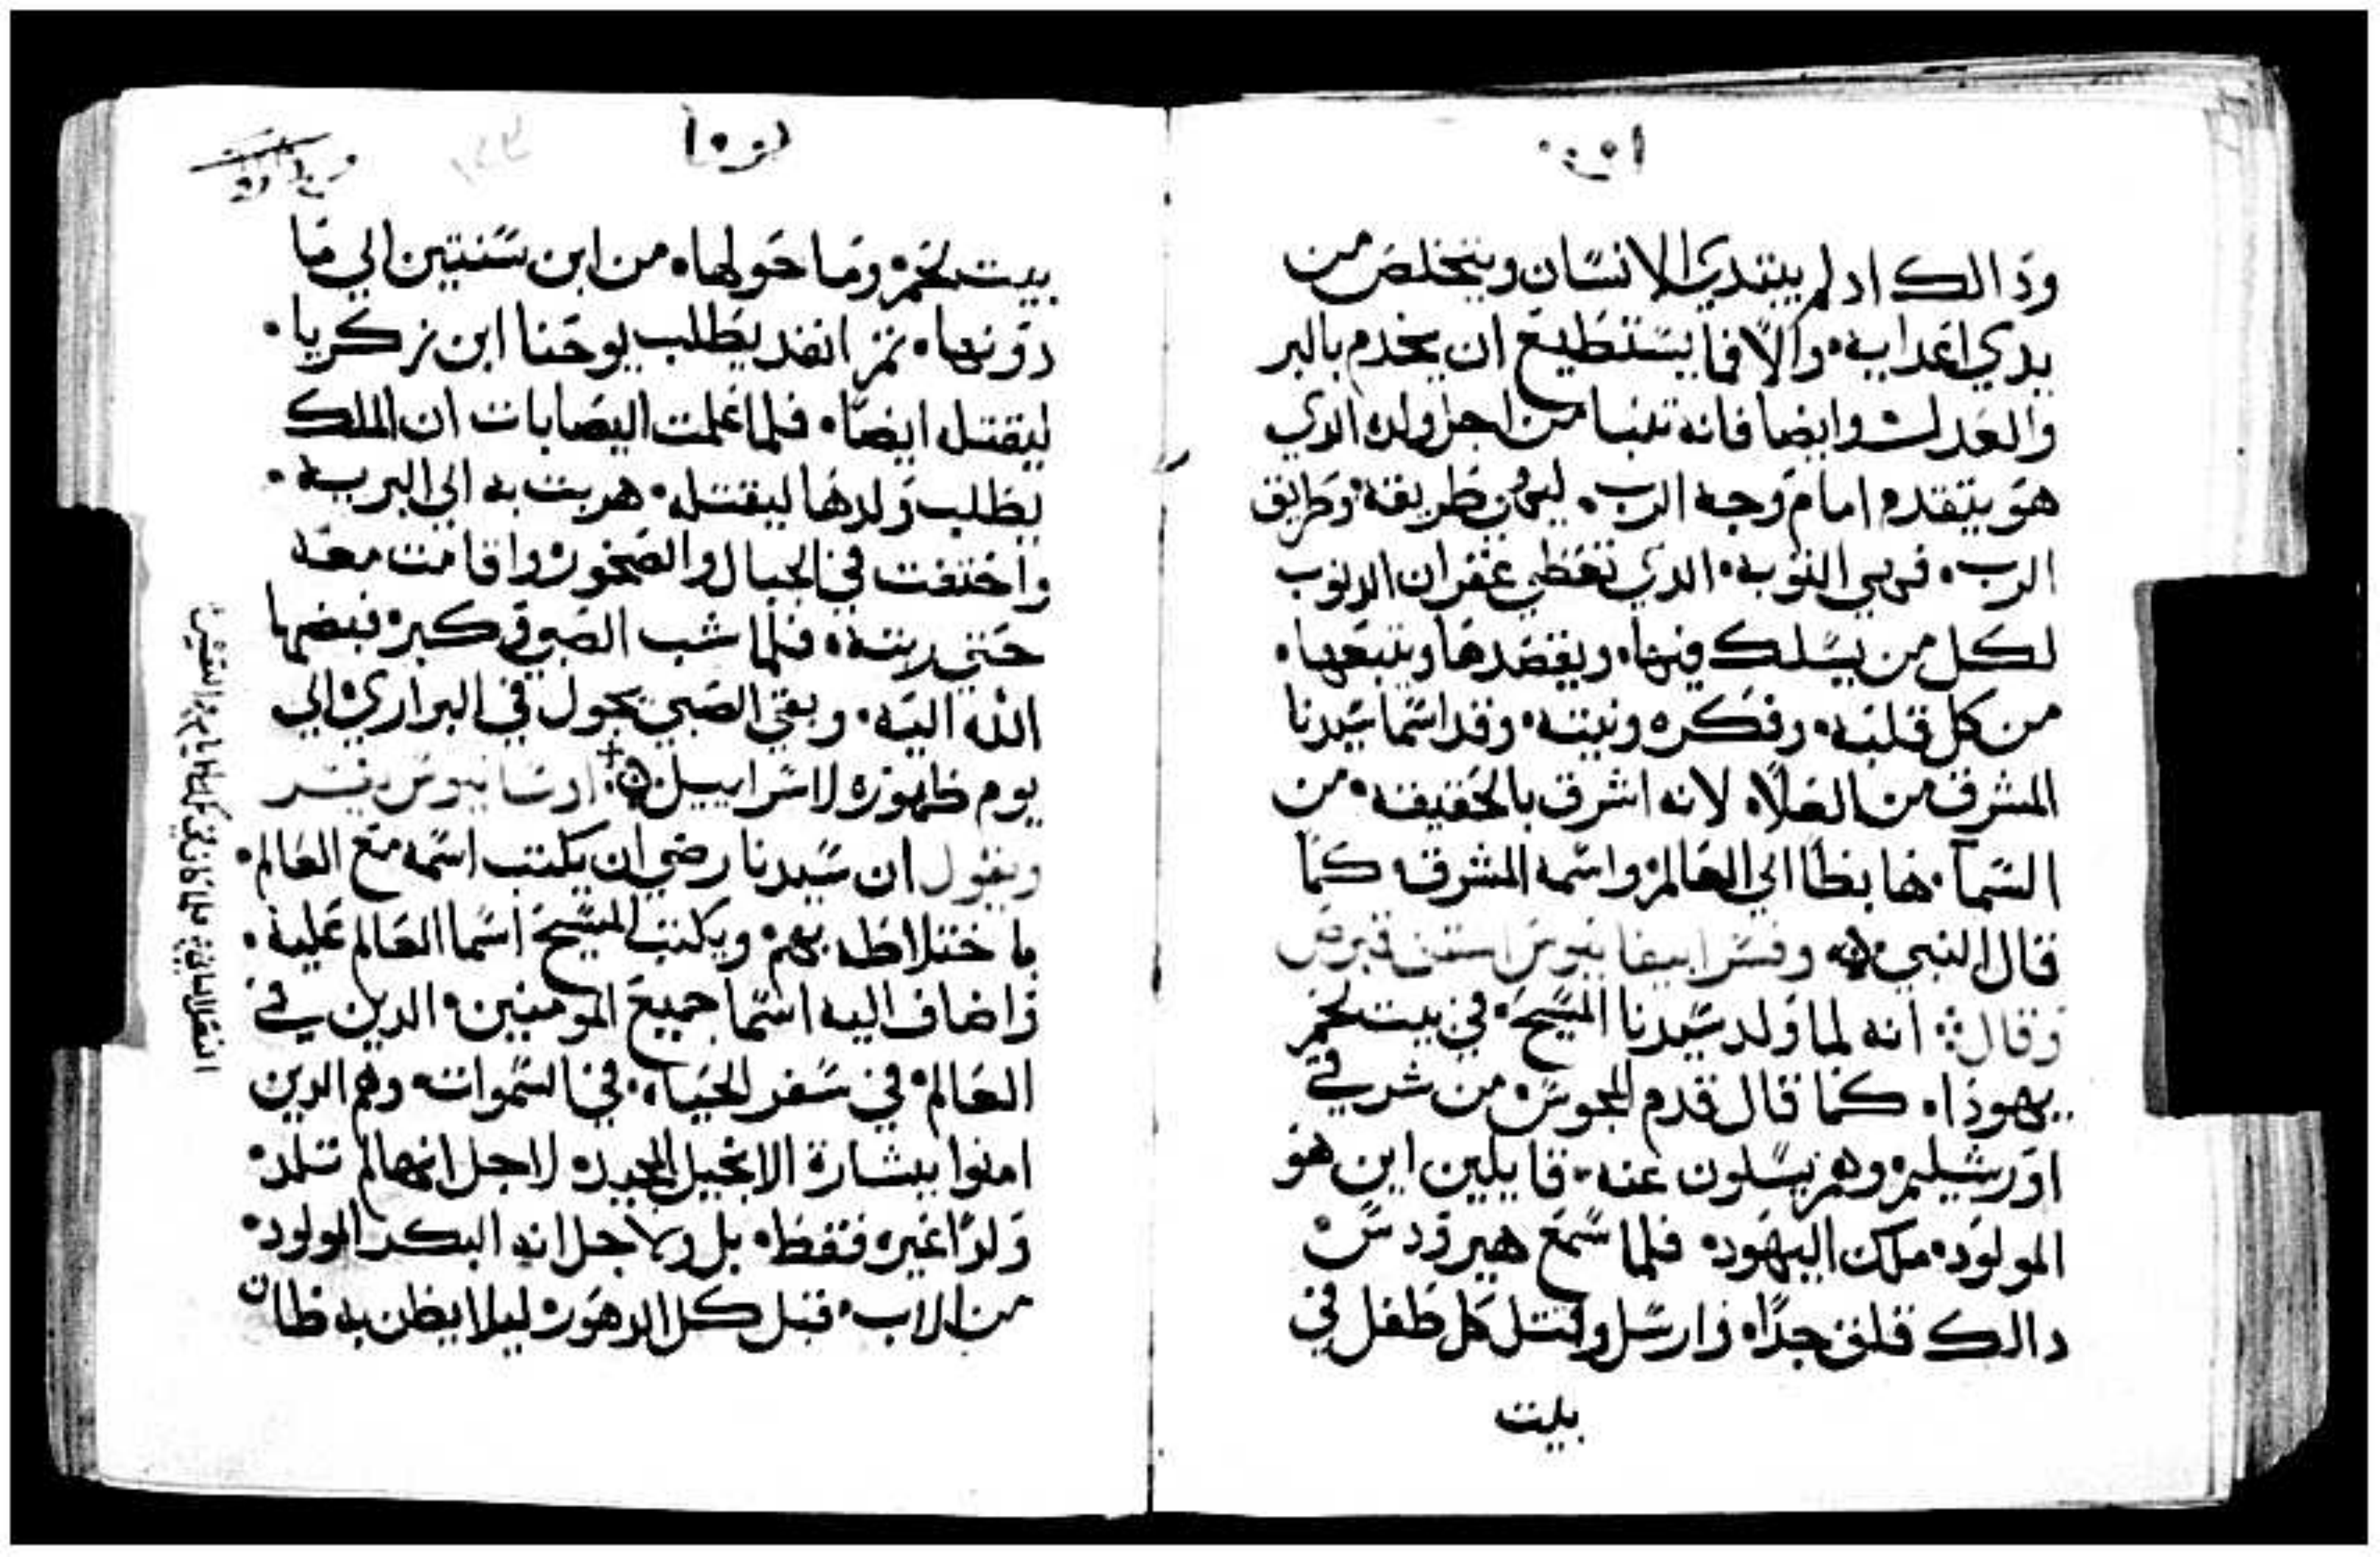 ودالك ادلم يبتدي الانسان ويتخلص من
يدي اعدايه والا فما يستطيع ان يخدم بالبر
والعدل وايضا فانه تنبا من اجل ولده الدي
هو يتقدم امام وجه الرب طريقه وطريق
الرب فهي التوبه الدي تعطي غفران الدنوب
لكل من يسلك فيها ويقصدها ويتبعها
من كل قلبه وفكره ونيته وقد اسما سيدنا
المشرق من العلاه لانه اشرق بالحقيقه من
السما هابطا الي العالم واسمه المشرق كما
قال النبي وفسر ابيفانيوس قبرص
وقال انه لما ولد سيدنا المسيح في بيت لحم
يهودا كما قال قدم المجوس من شرقي
اورشليم وهم يسلون عنه قايلين اين هو
المولود ملك اليهود فلما سمع هيرودس
دالك قلق جدا وارسل وقتل كل طفل في
بيت
بيت لحم وما حولها من ابن سنتين الي ما
دونها تم انفد يطلب يوحنا ابن زكريا
ليقتله ايضا فلما علمت اليصابات ان الملك
يطلب ولدها ليقتله هربت به الي البريه
واختفت في الجبال والصخور واقامت معه
حتي ربته فلما شب الصبي وكبر قبضها
الله اليه وبقي الصبي يجول في البراري الي
يوم ظهوره لاسراييل
ويقول ان سيدنا رضي ان يكتب اسمه مع العالم
باختلاطه بهم ويكتب المسيح اسما العالم عليه
واضاف اليه اسما جميع المومنين الدين في
العالم في سفر الحياه في السموات وهم الدين
امنوا ببشارة الانجيل المجيده لاجل انها لم تلد
ولدا غيره فقط بل ولاجل انه البكر المولود
من الاب قبل كل الدهور ليلا يظن به ظان